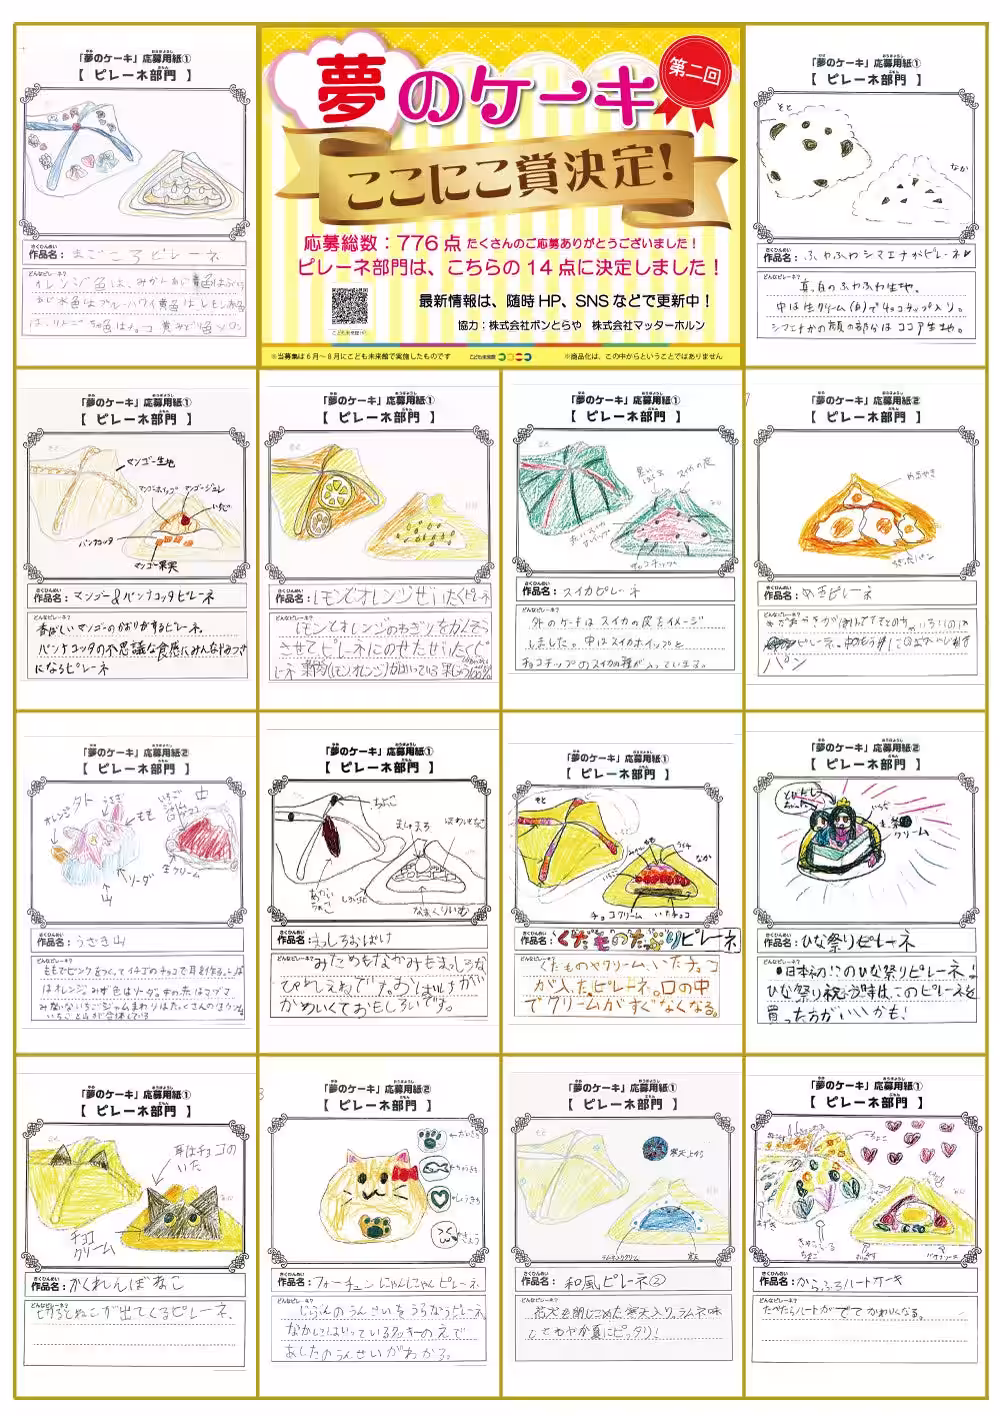 「夢のケーキ」応募用紙①
【 ピレーネ部門 】
作品名: まごころピレーネ
オレンジ色は、みかん
水色はブルーハワイ黄色はレモン
夢のケーキ
第二回
ここにこ賞決定!
応募総数:776点 たくさんのご応募ありがとうございました!
ピレーネ部門は、こちらの14点に決定しました!
最新情報は、随時HP、SNSなどで更新中!
協力:株式会社ボンとらや 株式会社マッターホルン
こども未来館HP
※当募集は6月~8月にこども未来館で実施したものです
こども未来館 ここにこ
※商品化は、この中からということではありません
「夢のケーキ」応募用紙①
【 ピレーネ部門 】
そと
なか
作品名: ふわふわシマエナガピレーネ
どんなピレーネ?
真っ白のふわふわ生地。
中は生クリーム(白)でチョコチップ入り。
シマエナガの顔の部分はココア生地。
「夢のケーキ」応募用紙①
【 ピレーネ部門 】
マンゴー生地
マンゴーホイップ
マンゴージュレ
いちご
パンナコッタ
マンゴー果実
作品名: マンゴー&パンナコッタピレーネ
どんなピレーネ?
香ばしいマンゴーのかおりがするピレーネ。
パンナコッタの不思議な食感にみんなやみつき
になるピレーネ
「夢のケーキ」応募用紙①
【 ピレーネ部門 】
作品名: レモンとオレンジぜいたくピレーネ
どんなピレーネ?
レモンとオレンジのわぎりをかんそう
させてピレーネにのせたぜいたくピ
レーネ
「夢のケーキ」応募用紙①
【 ピレーネ部門 】
スイカの皮
チョコチップ
作品名: スイカピレーネ
どんなピレーネ?
外のケーキはスイカの皮をイメージ
しました。中はスイカホイップと
チョコチップのスイカの種が入っています。
「夢のケーキ」応募用紙②
【 ピレーネ部門 】
めだまやき
作品名: めだまピレーネ
どんなピレーネ?
パン
「夢のケーキ」応募用紙②
【 ピレーネ部門 】
オレンジ
うさぎ
もも
ソーダ
山
生クリーム
作品名: うさぎ山
どんなピレーネ?
ももでピンクをつくってイチゴのチョコで耳を作る。
はオレンジみず色はソーダ中の赤はマグマ
みたいないちごジャムまわりはたくさんの生クリーム
いちごと山が合体している
「夢のケーキ」応募用紙①
【 ピレーネ部門 】
ましゅまろ
なまくりいむ
作品名: まっしろおばけ
どんなピレーネ?
みためもなかみもまっしろな
ぴれえねです。おばけが
かわいくておもしろいです。
「夢のケーキ」応募用紙①
【 ピレーネ部門 】
そと
なか
チョコクリーム
いたチョコ
作品名: くだものたっぷりピレーネ
どんなピレーネ?
くだものやクリーム、いたチョコ
が入ったピレーネ。口の中
でクリームがすぐなくなる。
「夢のケーキ」応募用紙②
【 ピレーネ部門 】
いちご
クリーム
作品名: ひな祭りピレーネ
どんなピレーネ?
●日本初!このひな祭りピレーネ!
ひな祭り祝う時は、このピレーネを
買った方がいいかも!
「夢のケーキ」応募用紙①
【 ピレーネ部門 】
耳はチョコの
いた
チョコ
クリーム
作品名: かくれんぼねこ
どんなピレーネ?
きるとねこが出てくるピレーネ。
「夢のケーキ」応募用紙②
【 ピレーネ部門 】
作品名: フォーチュンにゃんにゃんピレーネ
どんなピレーネ?
じぶんのうんせいをうらなうピレーネ。
なかにはいっているクッキーのえで
あしたのうんせいがわかる。
「夢のケーキ」応募用紙①
【 ピレーネ部門 】
寒天上から
ラムネクリーム
寒天
作品名: 和風ピレーネ②
どんなピレーネ?
花火を閉じこめた寒天入り。ラムネ味
でさわやか夏にピッタリ!
「夢のケーキ」応募用紙①
【 ピレーネ部門 】
あずき
作品名: からふるハートケーキ
どんなピレーネ?
たべたらハートがでてかわいくなる。